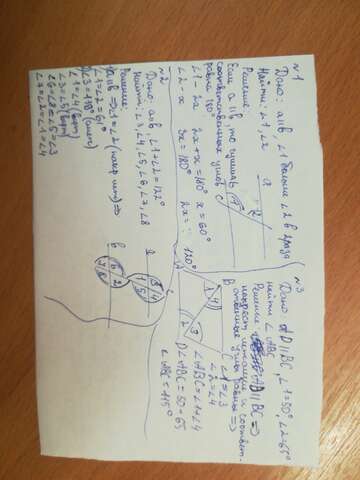 N1
Дано: a||b, ∠1 больше ∠2 в 2 раза
Найти: ∠1, ∠2
Решение
Если a||b, то
соответственных углов
равна 180°
∠1 - 2x
2x + x = 180°
x = 60°
∠2 - x
3x = 180°
2x =
120°
N2
Дано: a||b. ∠1+∠2=122°
Найти: ∠3, ∠4, ∠5, ∠6, ∠7, ∠8
Решение
a||b => ∠1=∠2 =>
∠1=∠2=61°
∠1=∠4 (верт)
∠3=∠5 (верт)
∠6=∠8=∠5=∠3
∠7=∠2=∠1=∠4
a
b
N3
Дано AD||BC, ∠1=50°, ∠2=65°
Найти ∠ABC
Решение AD||BC =>
накрест лежащие и соответ-
ственные углы равны =>
∠1=∠3
∠2=∠4
∠ABC=∠1+∠4
∠ABC=50+65
∠ABC=115°
A
B
C
D